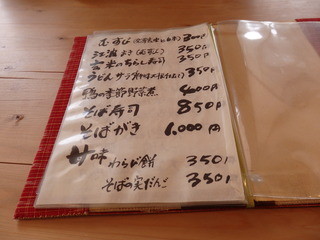 むすび 300円
350円
玄米のちらし寿司 350円
うどんサラダ 350円
鴨の季節野菜煮 400円
そば寿司 850円
そばがき 1,000円
甘味
わらび餅 350円
そばの実だんご 350円